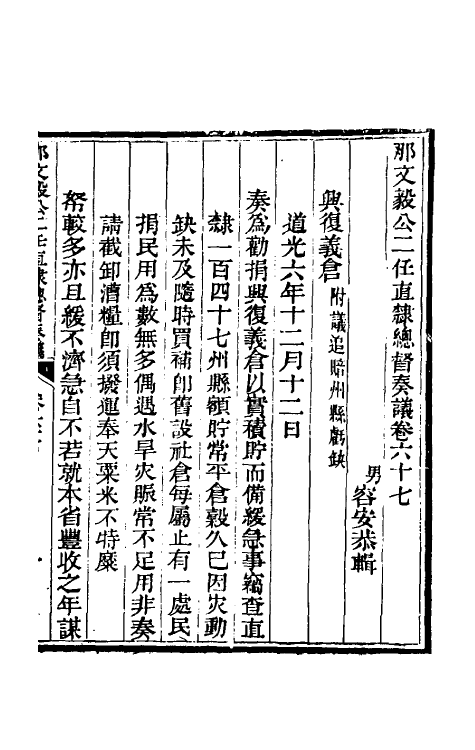 那文毅公二任直隸總督奏議卷六十七
男容安恭輯
興復義倉附議追賠州縣虧缺
道光六年十二月十二日
奏為勸捐興復義倉以實積貯而備緩急事竊查直
隸一百四十七州縣額貯常平倉穀久已因災動
缺未及隨時買補即舊設社倉每屬止有一處民
捐民用為數無多偶遇水旱灾賑常不足用非奏
請截卸漕糧即須撥運奉天粟米不特糜
帑較多亦且緩不濟急自不若就本省豐收之年謀
那文毅公二任直隸總督奏議